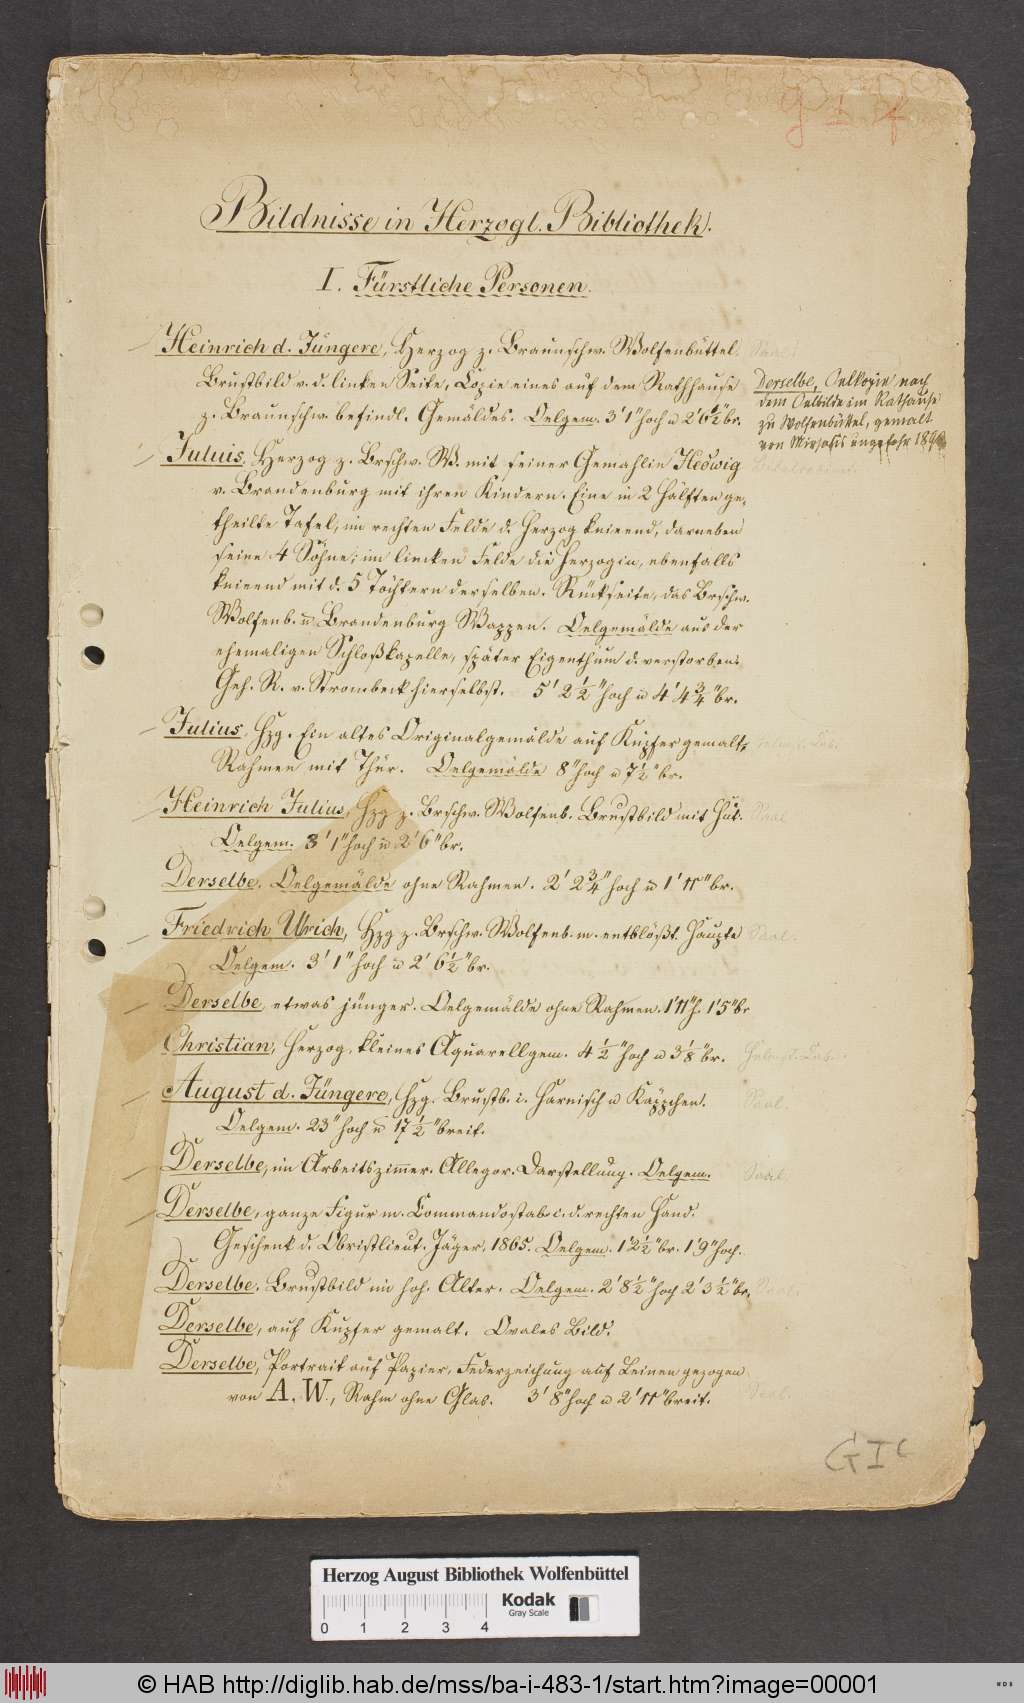 Bildnisse in Herzogl. Bibliothek.
I. Fürstliche Personen.
Heinrich d. Jüngere, Herzog z. Braunschw. Wolfenbüttel. Saal.
Brustbild v. d. linken Seite, Copie eines auf dem Rathhause
z. Braunschw. befindl. Gemäldes. Oelgem. 3' 1" hoch u 2' 6½" br.
Derselbe, Oelkopie nach
dem Oelbilde im Rathause
zu Wolfenbüttel, gemalt
von ungefähr
Juluis, Herzog z. Brschw. W. mit seiner Gemahlin Hedwig
v. Brandenburg mit ihren Kindern. Eine in 2 Hälften ge-
theilte Tafel, im rechten Felde d. Herzog knieend, darneben
seine 4 Söhne; im lincken Felde die Herzogin, ebenfalls
knieend mit d. 5 Töchtern derselben. Rückseite, das Brschw.
Wolfenb. u Brandenburg Wappen. Oelgemälde aus der
ehemaligen Schloßkapelle, später Eigenthum d. verstorben.
Geh. R. v. Strombeck hierselbst. 5' 2½" hoch u 4' 4¾" br.
Julius, Hzg. Ein altes Originalgemälde auf Kupfer gemalt,
Rahmen mit Thür. Oelgemälde 8" hoch u 7½" br.
Heinrich Julius, Hzg z. Brschw. Wolfenb. Brustbild mit Hut. Saal
Oelgem. 3' 1" hoch u 2' 6" br.
Derselbe. Oelgemälde ohne Rahmen. 2' 2¾" hoch u 1' 11" br.
Friedrich Ulrich, Hzg z. Brschw. Wolfenb. m. entblößt. Haupte Saal.
Oelgem. 3' 1" hoch u 2' 6½" br.
Derselbe, etwas jünger. Oelgemälde ohne Rahmen. 1' 11" h. 1' 5" br
Christian, Herzog, kleines Aquarellgem. 4½" hoch u 3⅛" br.
August d. Jüngere, Hzg. Brustb. i. Harnisch u Käppchen. Saal.
Oelgem. 23" hoch u 17½" breit.
Derselbe, im Arbeitszimmer. Allegor. Darstellung. Oelgem. Saal.
Derselbe, ganze Figur m. Commandostab i. d. rechten Hand.
Geschenk d. Obristlieut. Jäger, 1865. Oelgem. 1' 2½" br. 1' 9" hoch.
Derselbe. Brustbild im hoh. Alter. Oelgem. 2' 8½" hoch 2' 3½" br. Saal.
Derselbe, auf Kupfer gemalt. Ovales Bild.
Derselbe, Portrait auf Papier, Federzeichung auf Leinen gezogen
von A. W., Rahm ohne Glas. 3' 8" hoch u 2' 11" breit.
G I c
Herzog August Bibliothek Wolfenbüttel
0 1 2 3 4
Kodak
Gray Scale
© HAB http://diglib.hab.de/mss/ba-i-483-1/start.htm?image=00001